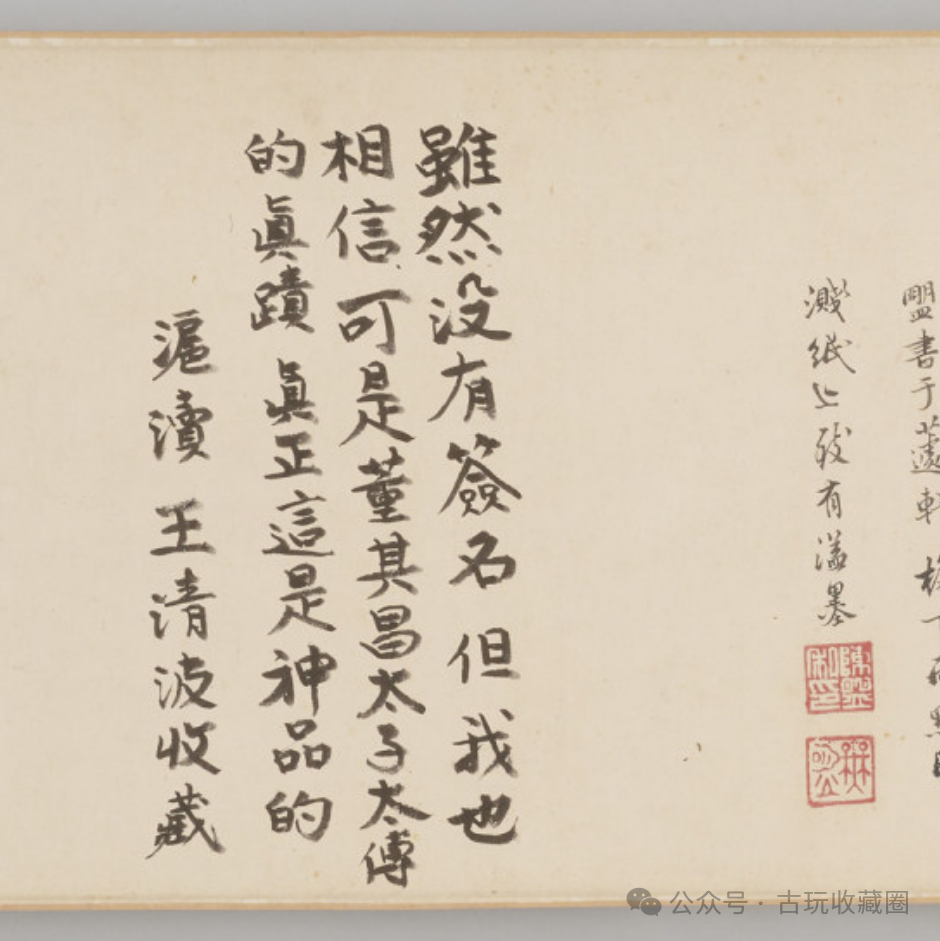 盟書于蘧軒
濺紙上致有溢墨
雖然没有簽名但我也
相信可是董其昌太子太傅
的眞蹟眞正這是神品的
滬瀆王清波收藏
公众号·古玩收藏圈